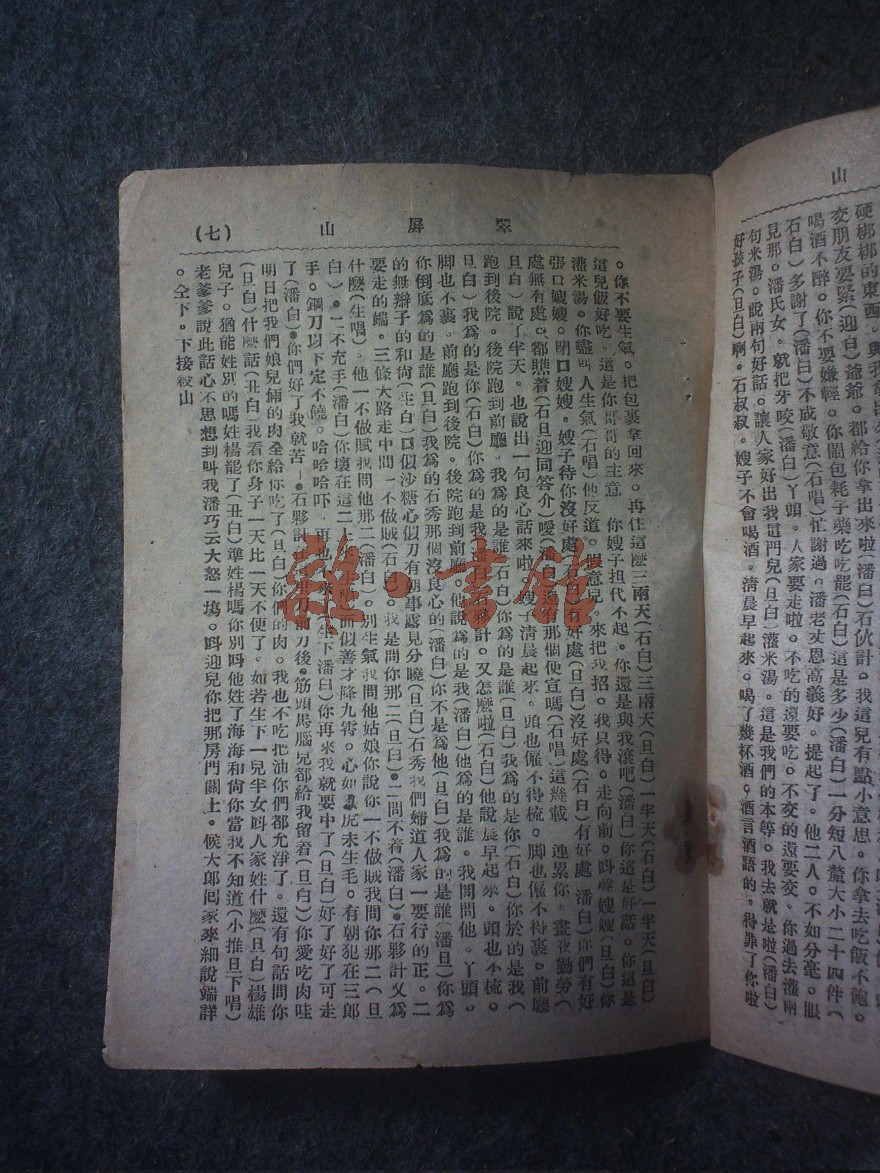 山
硬梆梆的東西。與我
交朋友要緊(迎白)爺爺。都給你拿出來啦(潘白)石伙計。我這兒有點小意思。你拿去吃飯不飽。
喝酒不醉。你不要嫌輕。你開包耗子藥吃吃罷(石白)這是多少(潘白)一分短八釐大小二十四件(
石白)多謝了(潘白)不成敬意(石唱)忙謝過。潘老丈恩高義好。提起了。他二人。不如分毫。眼
見那。潘氏女。就把牙咬(潘白)丫頭。人家要走啦。不吃的還要吃。不交的還要交。你過去灌兩
句米湯。說兩句好話。讓人家好出我這門兒(旦白)灌米湯。這是我們的本等。我去就是啦(潘白)
好孩子(旦白)啊。石叔叔。嫂子不會喝酒。淸晨早起來。喝了幾杯酒。酒言酒語的。得罪了你啦
翠屏山
(七)
。你不要生氣。把包裹拿回來。再住這麼三兩天(石白)三兩天(旦白)一半天(石白)一半天(旦白)
這兒飯好吃。這是你哥哥的主意 你嫂子担代不起。你還是與我滾吧(潘白)你這是好話。你這是
灌米湯。你盡叫人生氣(石唱)他反道。 意兒。來把我招。我只得。走向前。叫聲嫂嫂(旦白)你
張口嫂嫂。閉口嫂嫂。嫂子待你沒好處(石白)有好處(旦白)沒好處(石白)有好處 潘白)你們有好
處無有處。都瞧着(石旦迎同答介)噯(潘白)還有那個便宣嗎(石唱)這幾載 連累你。晝夜勤勞(
旦白)說了半天。也說出一句良心話來啦。嫂子淸晨起來。頭也僱不得梳。脚也僱不待裹。前廳
跑到後院。後院跑到前廳。我爲的是誰(石白)你爲的是誰(旦白)我爲的是你(石白)你於的是我(
旦白)我爲的是你(石白)你爲的是我 計。又怎麽啦(石白)他說晨早起來。頭也不梳。
脚也不裹。前廳跑到後院。後院跑到前廳。他說爲的是我(潘白)他爲的是誰。我問問他。丫頭。
你倒底爲的是誰(旦白)我爲的石秀那個沒良心的(潘白)你不是爲他(旦白)我爲的是誰(潘旦)你爲
的無辮子的和尙(生白)口似沙糖心似刀有朝事露見分曉(旦白)石秀我們婦道人家一要行的正。二
要走的端。三條大路走中間 一不做賊(石白)。我是問你那二(旦白)。一問不着(潘白)。石夥計又爲
什麽(生唱)。他一不做賊我問他那二(潘白)。別生氣我問他姑娘你說你一不做賊我問你那二(旦
白)。二不充手(潘白)你壞在這二上 面似善才降九霄。心如 虎未生毛。有朝犯在三郞
手。鋼刀以下定不饒。哈哈哈吓 再也不 (生下潘白)你再來我就要中了(旦白)好了好了可走
了(潘白)。你們好了我就苦 。石夥計 刀前刀後。筋頭馬腦兒都給我留着(旦白)你愛吃肉哇
明日把我們娘兒倆的肉全給你吃了(旦白)你們的肉。我也不吃把油你們都允淨了。還有句話問你
(旦白)什麽話(丑白)我看你身子一天比一天不便了。如若生下一兒半女叫人家姓什麽(旦白)楊雄
兒子。猶能姓別的嗎姓楊罷了(丑白)準姓楊嗎你別叫他姓了海海和尙你當我不知道(小推旦下唱)
老爹爹說此話心不思想到叫我潘巧云大怒一塲。叫迎兒你把那房門關上。候大郞囘家來細說端詳
。仝下。下接殺山
雜·書館